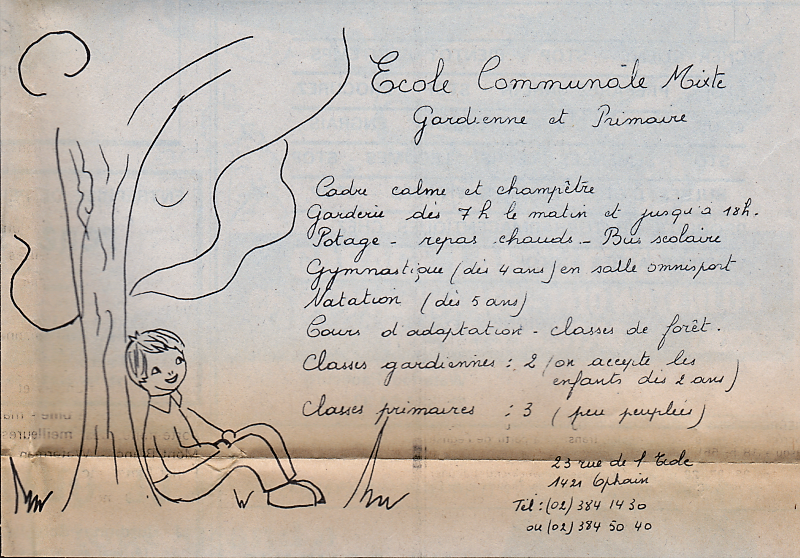 Ecole Communâle Mixte
Gardienne et Primaire
Cadre calme et champêtre
Garderie dès 7 h le matin et jusqu'à 18h.
Potage - repas chauds - Bus scolaire
Gymnastique (dès 4 ans) en salle omnisport
Natation (dès 5 ans)
Cours d'adaptation - classes de forêt.
Classes gardiennes : 2 (on accepte les
enfants dès 2 ans)
Classes primaires : 3 (peu peuplées)
23 rue de l'Ecole
1421 Ophain
Tél : (02) 384 14 30
ou (02) 384 50 40
meilleures